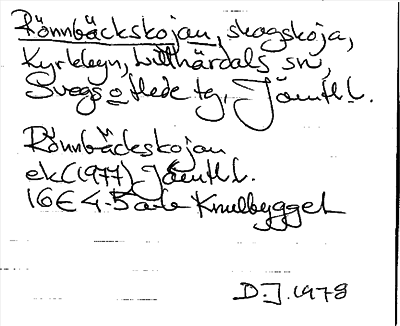 Rönnbäckskojan, skogskoja,
Kyrkbyn, Lillhärdals sn,
Svegs o Hede tg, Jämtl.l.
Rönnbäckskojan
ek (1977) Jämtl.l.
16E 4-5 a-b Knulbygget
D.J. 1978